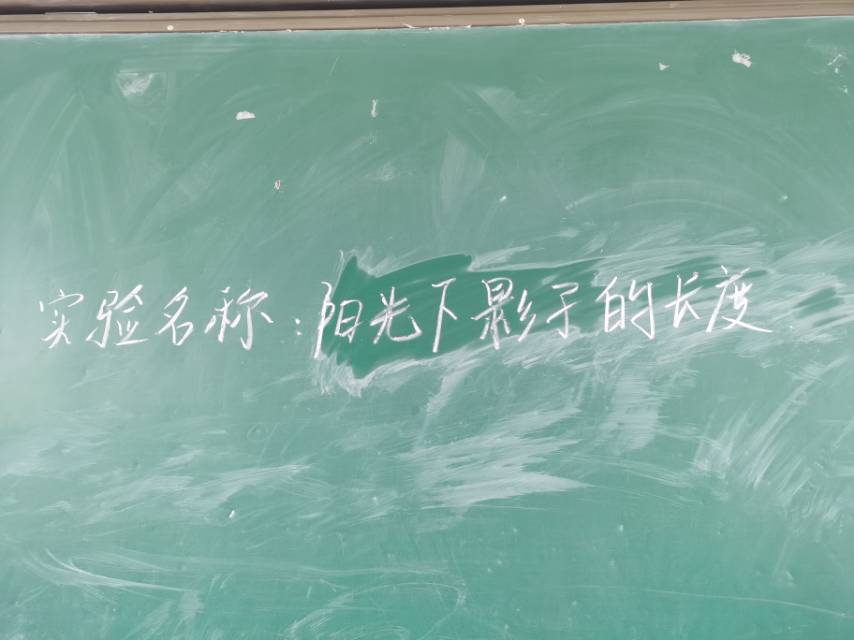 实验名称：阳光下影子的长度